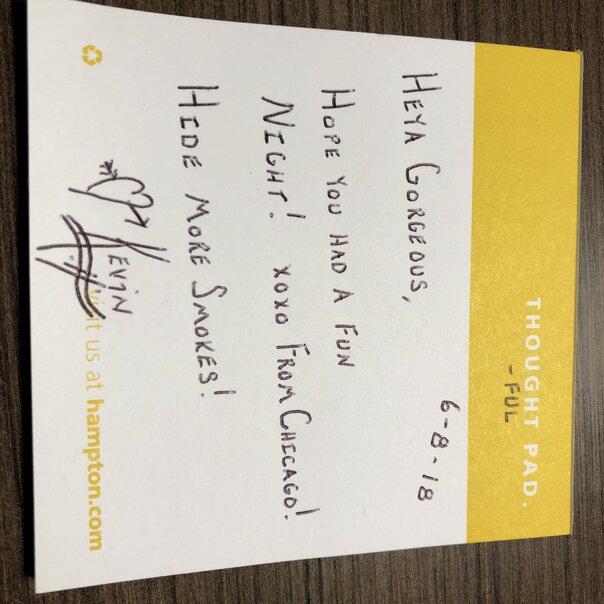 THOUGHT PAD.
-FUL
6-8-18
HEYA GORGEOUS,
HOPE YOU HAD A FUN
NIGHT! XOXO FROM CHICAGO!
HIDE MORE SMOKES!
KEVIN
visit us at hampton.com